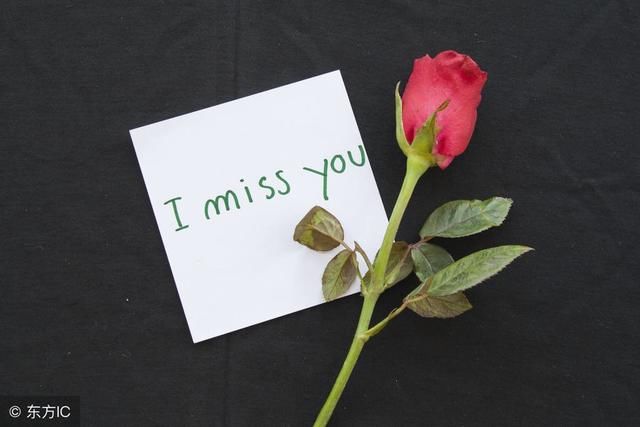 I miss you
© 东方IC